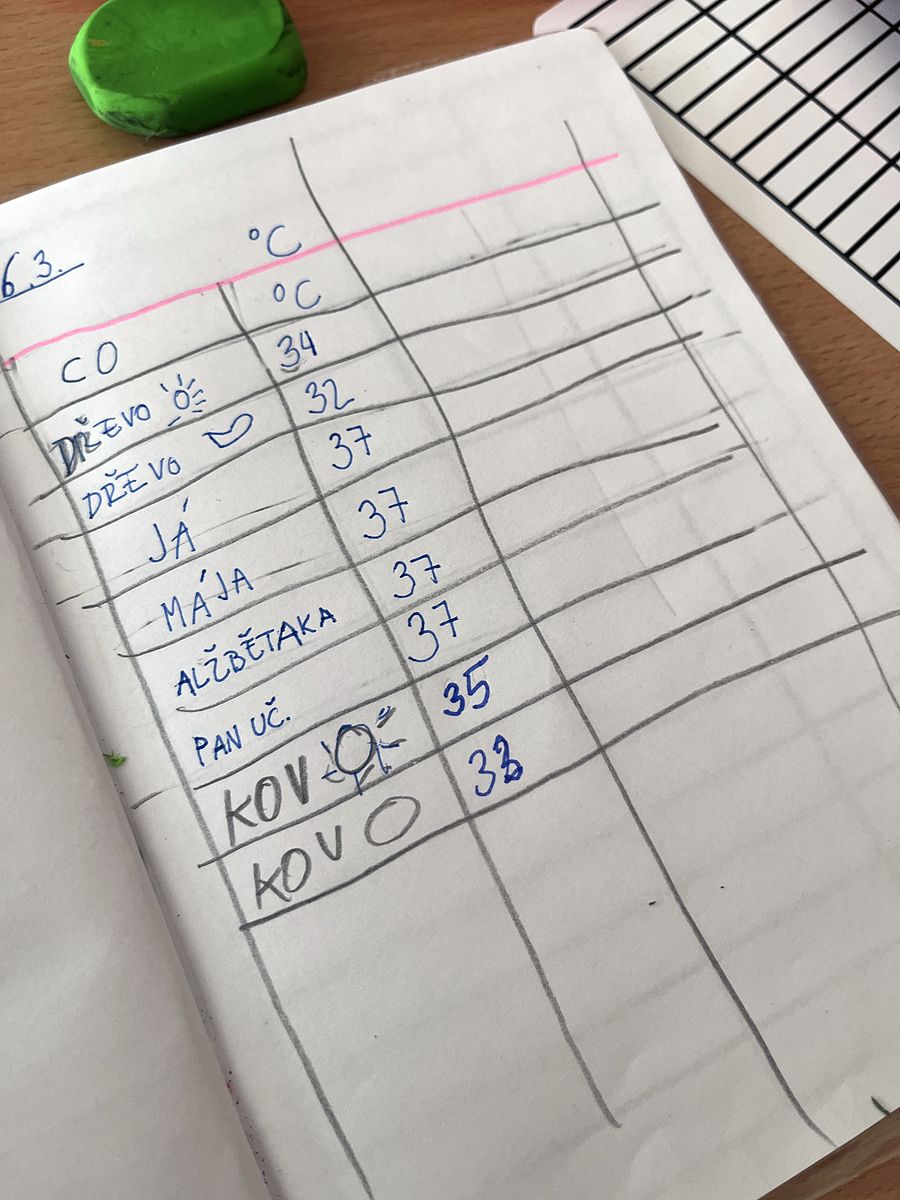 6.3.
°C
CO °C
DŘEVO 34
DŘEVO 32
JÁ 37
MÁJA 37
ALŽBĚTAKA 37
PAN UČ. 37
KOV 35
KOV